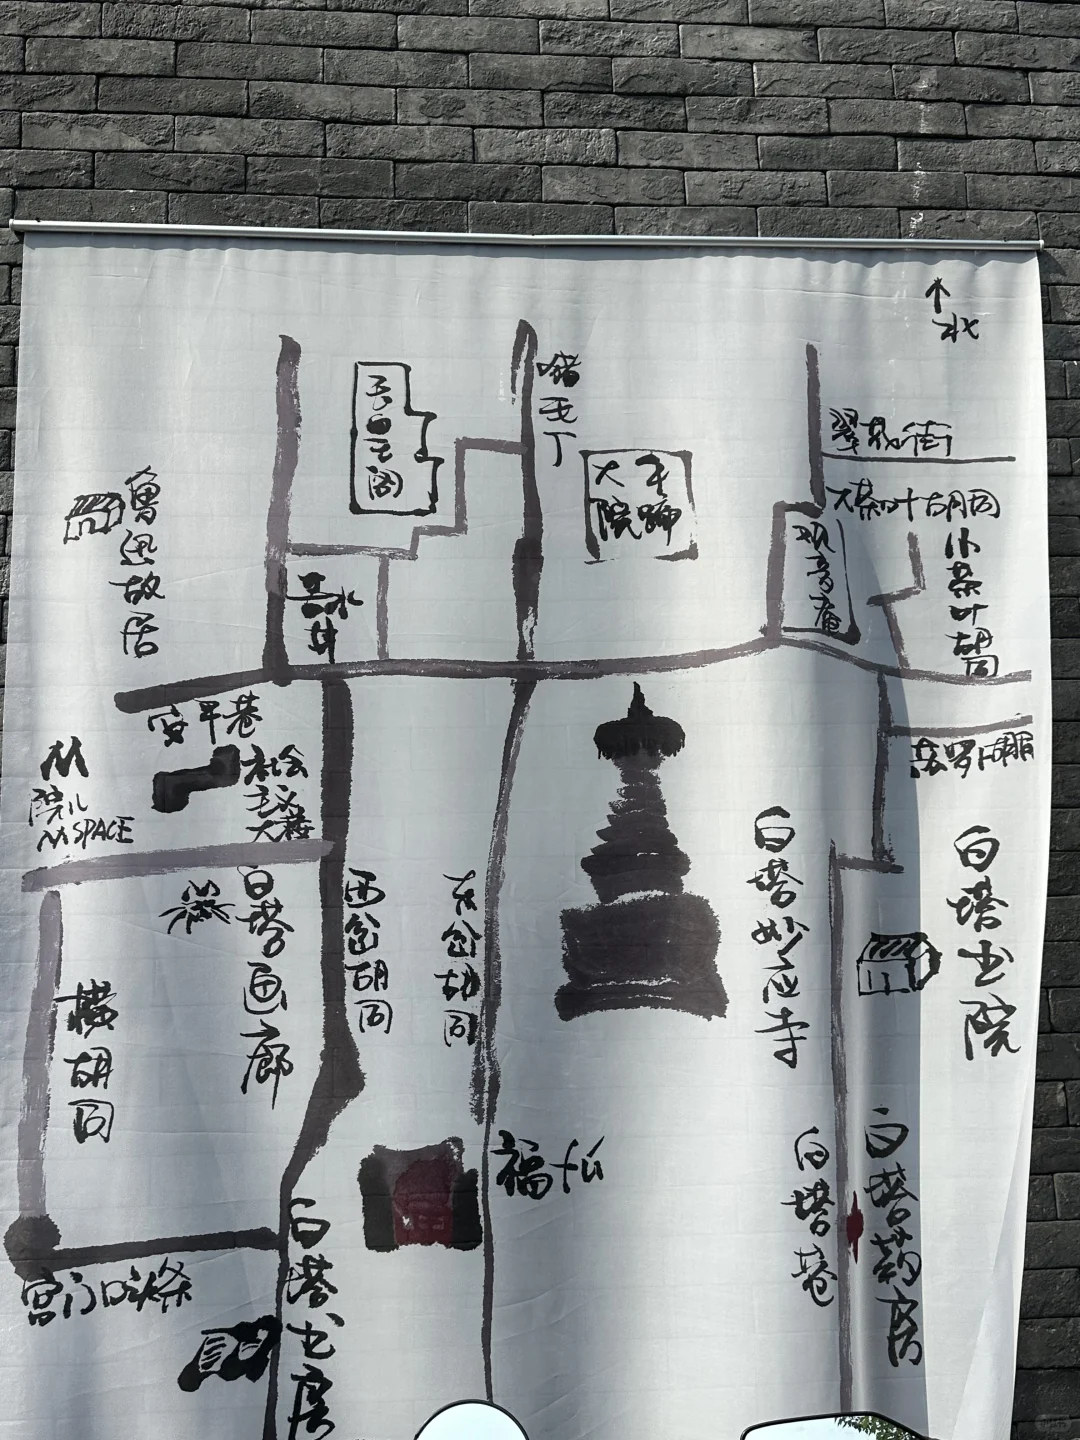 北
翠花街
大茶叶胡同
小茶叶胡同
观音庵
大院
魯迅故居
苦水井
安平巷
社会主义大楼
院儿
SPACE
苏罗卜胡同
白塔画廊
西岔胡同
东岔胡同
白塔妙应寺
白塔书院
横胡同
福
白塔巷
白塔药房
宫门口头条
白塔书房